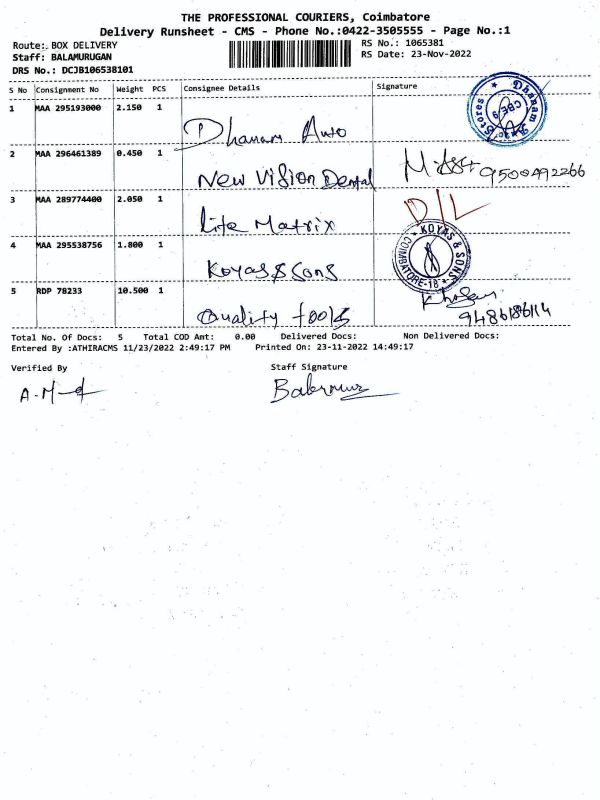 THE PROFESSIONAL COURIERS, Coimbatore
Delivery Runsheet - CMS - Phone No.:0422-3505555 - Page No.:1
Route: BOX DELIVERY RS No.: 1065381
Staff: BALAMURUGAN RS Date: 23-Nov-2022
DRS No.: DCJB106538101
S No Consignment No Weight PCS Consignee Details Signature
1 MAA 295193000 2.150 1
Dhanam Auto
Dhanam Stores CBE 9
2 MAA 296461389 0.450 1
New Vision Dental 9500492266
3 MAA 289774400 2.050 1
Lite Matrix D/L
4 MAA 295538756 1.800 1
Koyas & Sons
KOYAS & SONS COIMBATORE-18
5 RDP 78233 10.500 1
Quality tools
Total No. Of Docs: 5 Total COD Amt: 0.00 Delivered Docs: Non Delivered Docs:
Entered By :ATHIRACMS 11/23/2022 2:49:17 PM Printed On: 23-11-2022 14:49:17
Verified By Staff Signature